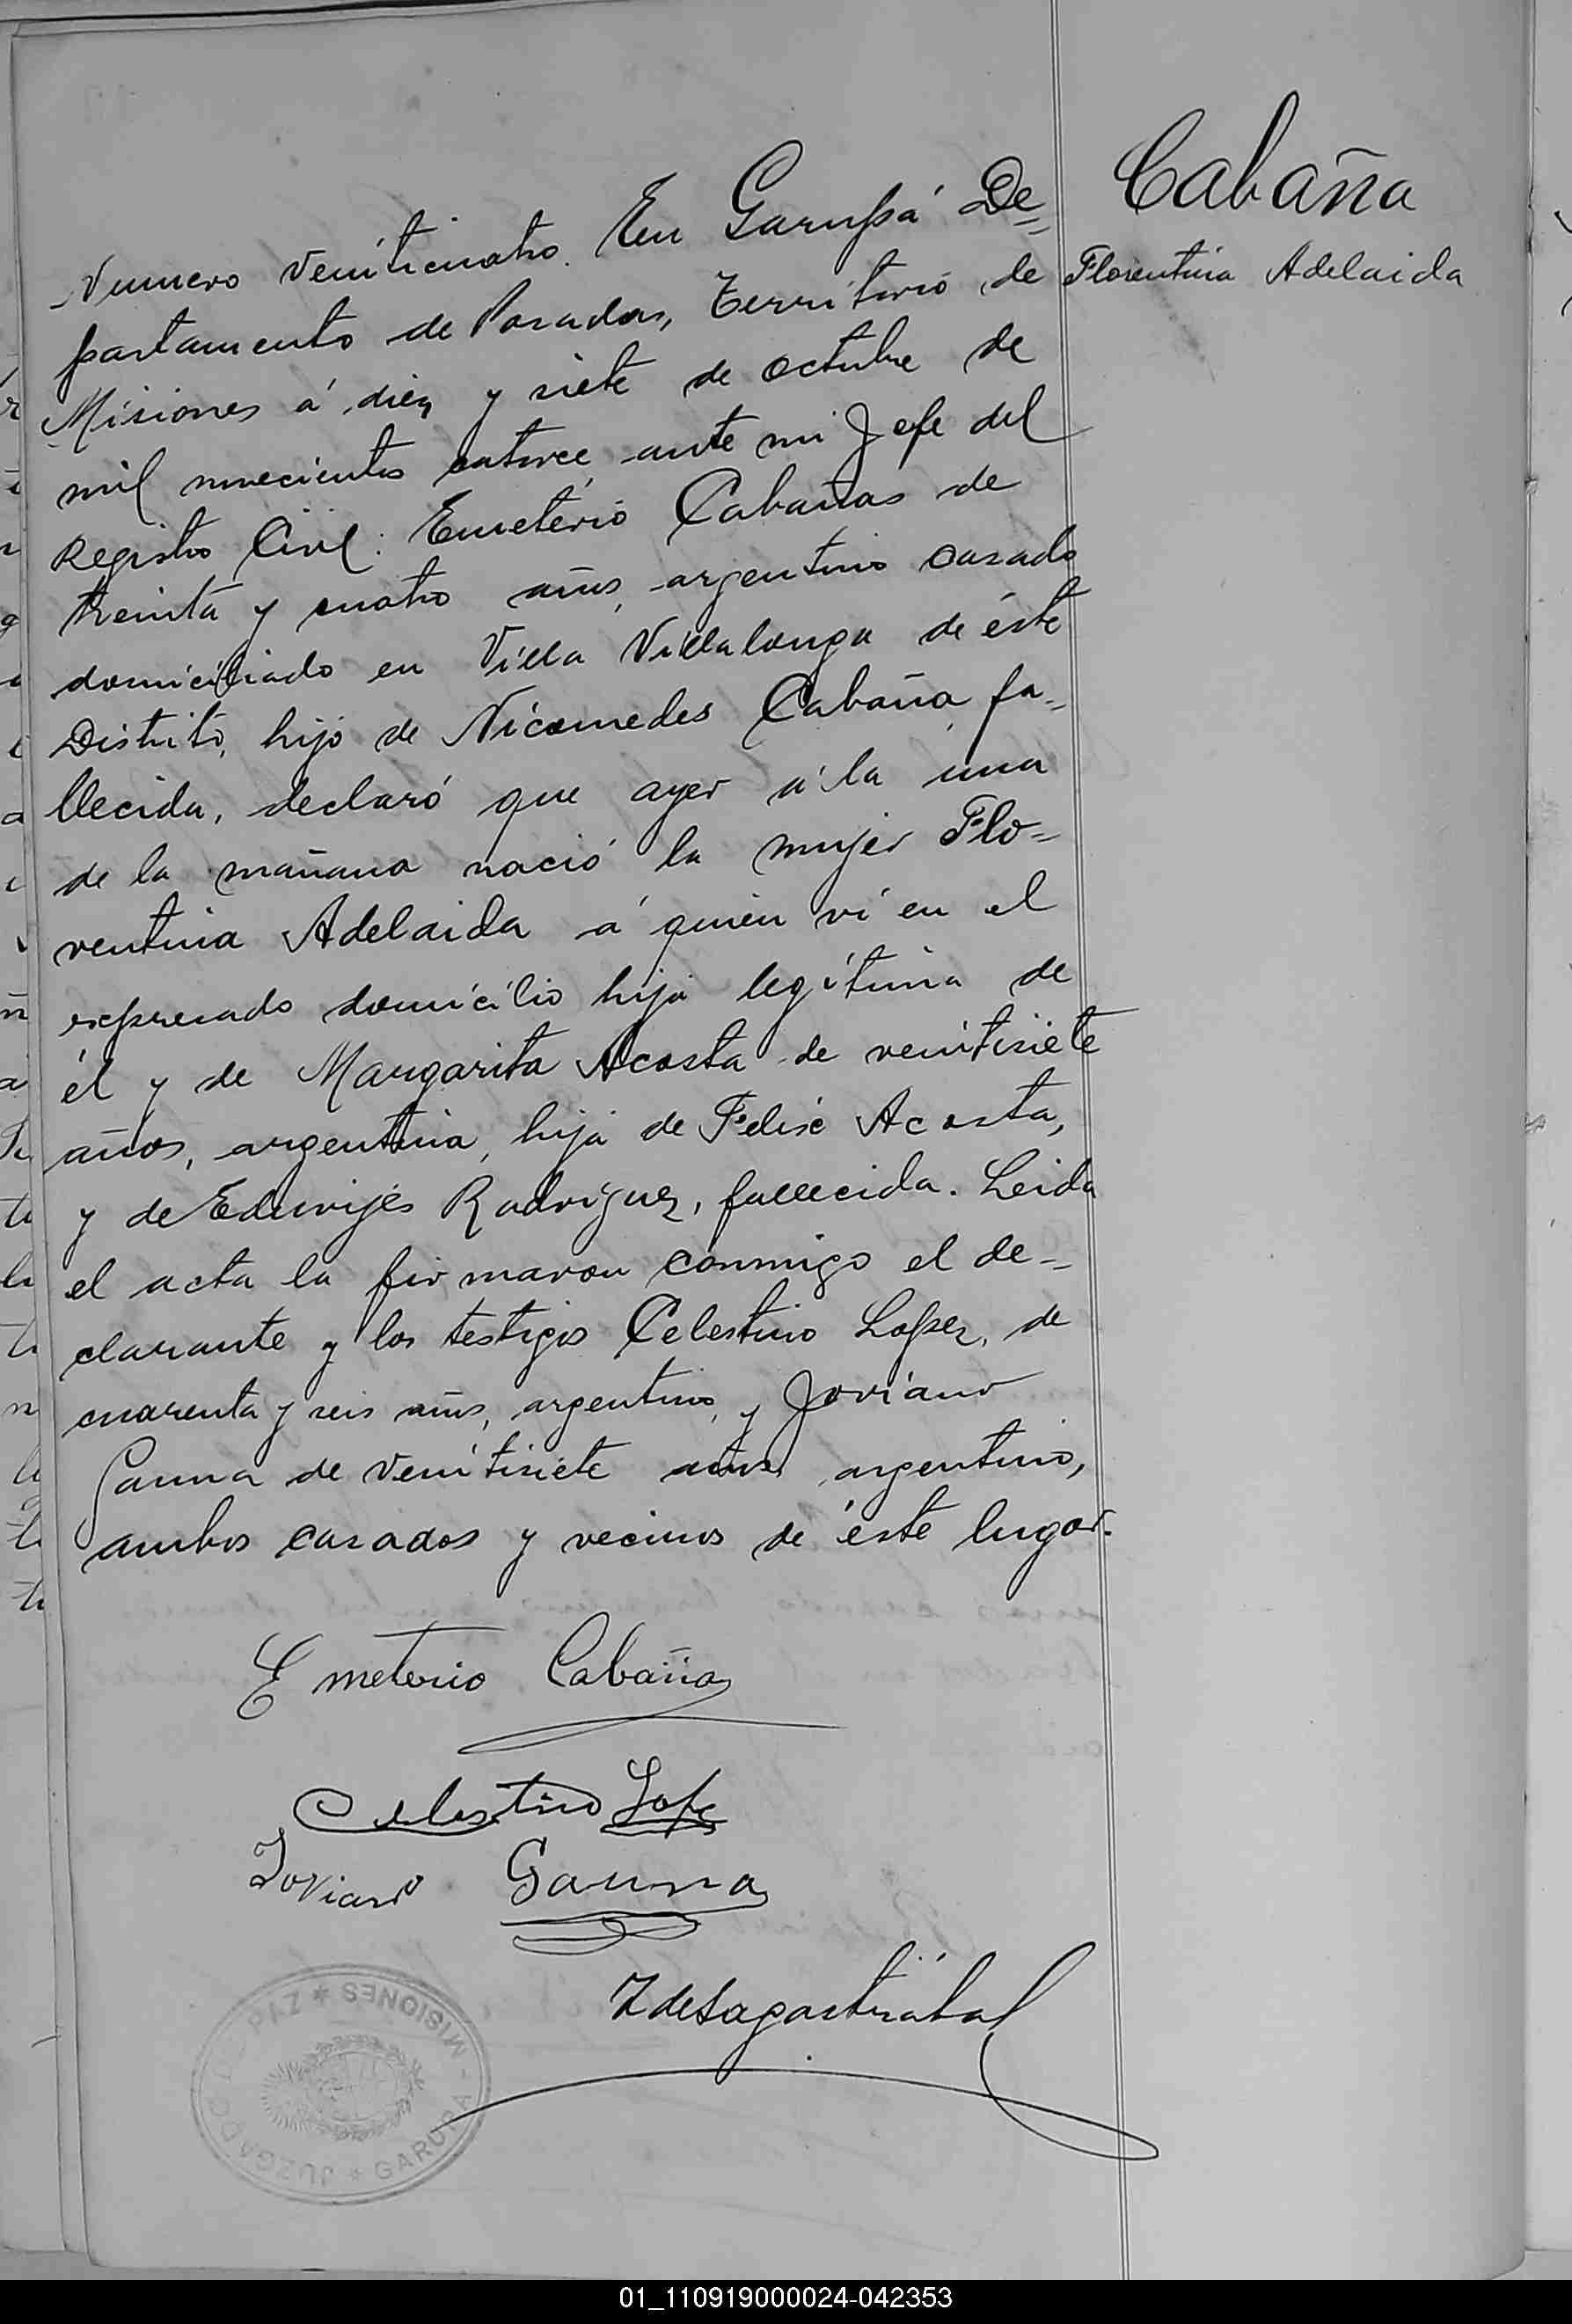 Cabaña
Florentina Adelaida
Numero veinticuatro. En Garupá De=
partamento de Posadas, Territorio de
Misiones á diez y siete de octubre de
mil novecientos catorce, ante mi Jefe del
Registro Civil: Emeterio Cabañas de
treinta y cuatro años, argentino casado
domiciliado en Villa Villalonga de éste
Distrito, hijo de Nicomedes Cabaña, fa=
llecida, declaró que ayer á la una
de la mañana nació la mujer Flo=
rentina Adelaida á quien ví en el
expresado domicilio hija legítima de
él y de Margarita Acosta de veintisiete
años, argentina, hija de Felisé Acosta,
y de Eduvijes Rodríguez, fallecida. Leida
el acta la firmaron conmigo el de=
clarante y los testigos Celestino Lopez, de
cuarenta y seis años, argentino, y Joviano
Gauna de veintisiete años argentino,
ambos casados y vecinos de éste lugar.
Emeterio Cabaña
Celestino Lope
Joviano Gauna
JUZGADO DE PAZ * MISIONES - GARUPA *
01_110919000024-042353